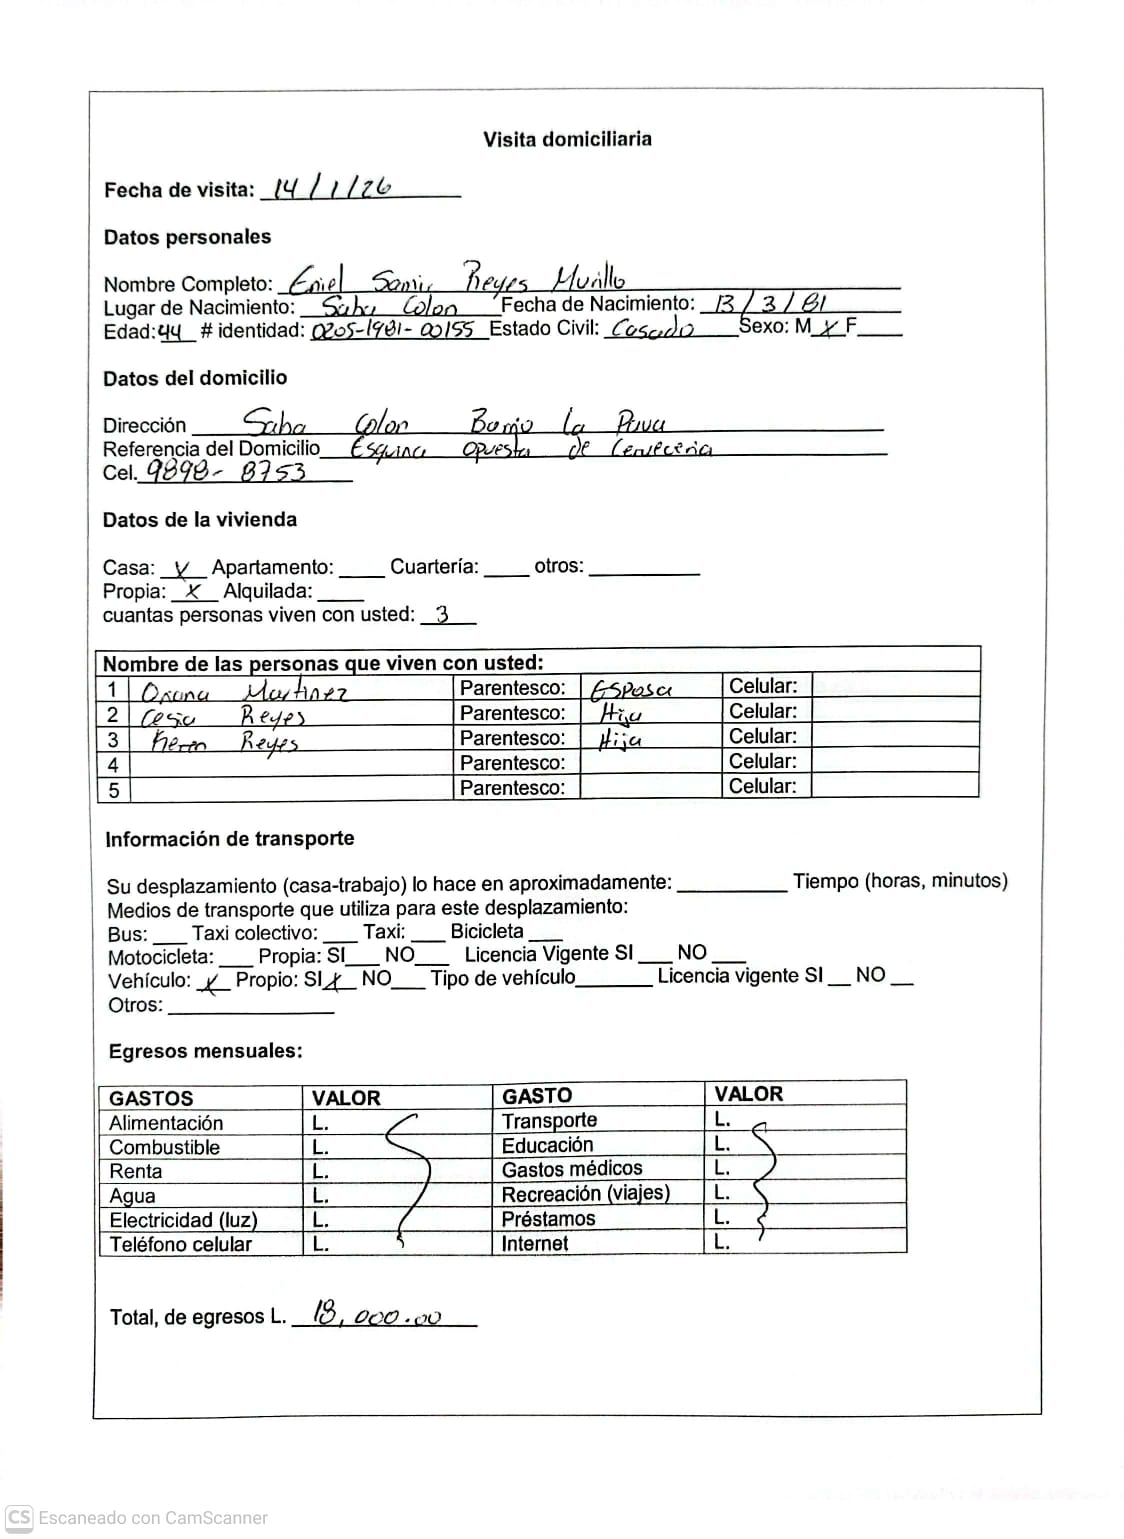 Visita domiciliaria
Fecha de visita: 14/1/26
Datos personales
Nombre Completo: Eniel Samir Reyes Murillo
Lugar de Nacimiento: Saba Colon Fecha de Nacimiento: 13/3/81
Edad: 44 # identidad: 0205-1981-00155 Estado Civil: Casado Sexo: M x F
Datos del domicilio
Dirección Saba Colon Barrio La
Referencia del Domicilio Esquina opuesta de Cerveceria
Cel. 9898-8753
Datos de la vivienda
Casa: x Apartamento: ____ Cuartería: ____ otros: ____
Propia: x Alquilada: ____
cuantas personas viven con usted: 3
Nombre de las personas que viven con usted:
1 Martinez Parentesco: Esposa Celular:
2 Cesia Reyes Parentesco: Hija Celular:
3 Keren Reyes Parentesco: Hija Celular:
4 Parentesco: Celular:
5 Parentesco: Celular:
Información de transporte
Su desplazamiento (casa-trabajo) lo hace en aproximadamente: ____ Tiempo (horas, minutos)
Medios de transporte que utiliza para este desplazamiento:
Bus: ____ Taxi colectivo: ____ Taxi: ____ Bicicleta ____
Motocicleta: ____ Propia: SI____ NO____ Licencia Vigente SI ____ NO ____
Vehículo: x Propio: SI x NO____ Tipo de vehículo____ Licencia vigente SI __ NO __
Otros: ____
Egresos mensuales:
GASTOS VALOR GASTO VALOR
Alimentación L. Transporte L.
Combustible L. Educación L.
Renta L. Gastos médicos L.
Agua L. Recreación (viajes) L.
Electricidad (luz) L. Préstamos L.
Teléfono celular L. Internet L.
Total, de egresos L. 18,000.00
CS Escaneado con CamScanner